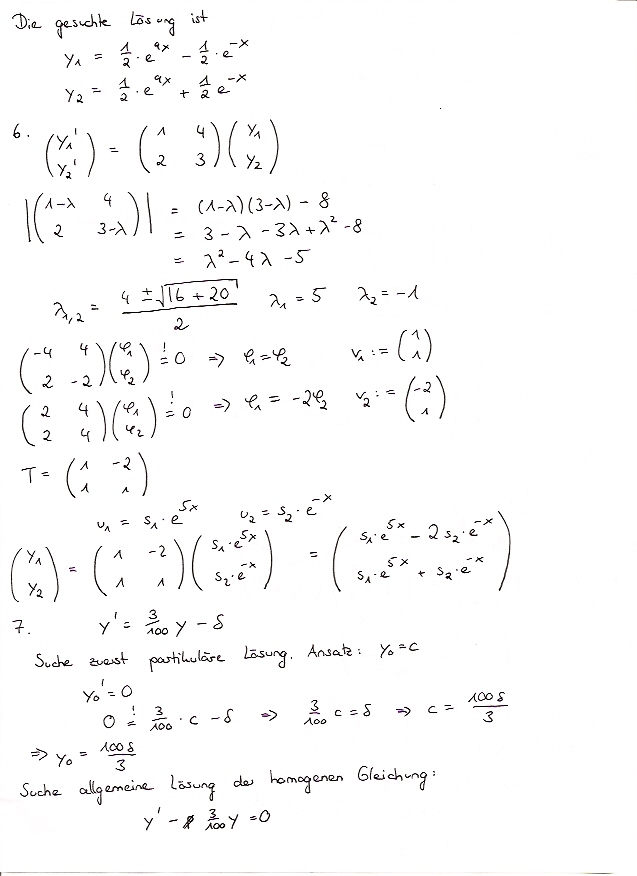 Die gesuchte Lösung ist
y₁ = 1/2 · e^{9x} − 1/2 · e^{−x}
y₂ = 1/2 · e^{9x} + 1/2 e^{−x}
6. (y₁' ; y₂') = (1 4 ; 2 3) (y₁ ; y₂)
|(1−λ 4 ; 2 3−λ)| = (1−λ)(3−λ) − 8
= 3 − λ − 3λ + λ² − 8
= λ² − 4λ − 5
λ₁,₂ = (4 ± √(16 + 20)) / 2 λ₁ = 5 λ₂ = −1
(−4 4 ; 2 −2) (φ₁ ; φ₂) =! 0 ⇒ φ₁ = φ₂ v₁ := (1 ; 1)
(2 4 ; 2 4) (φ₁ ; φ₂) =! 0 ⇒ φ₁ = −2φ₂ v₂ := (−2 ; 1)
T = (1 −2 ; 1 1)
u₁ = s₁ · e^{5x} u₂ = s₂ · e^{−x}
(y₁ ; y₂) = (1 −2 ; 1 1) (s₁ · e^{5x} ; s₂ · e^{−x}) = (s₁ · e^{5x} − 2 s₂ · e^{−x} ; s₁ · e^{5x} + s₂ · e^{−x})
7. y' = 3/100 y − δ
Suche zuerst partikuläre Lösung. Ansatz: y₀ = c
y₀' = 0
0 =! 3/100 · c − δ ⇒ 3/100 c = δ ⇒ c = 100δ/3
⇒ y₀ = 100δ/3
Suche allgemeine Lösung der homogenen Gleichung:
y' − 3/100 y = 0